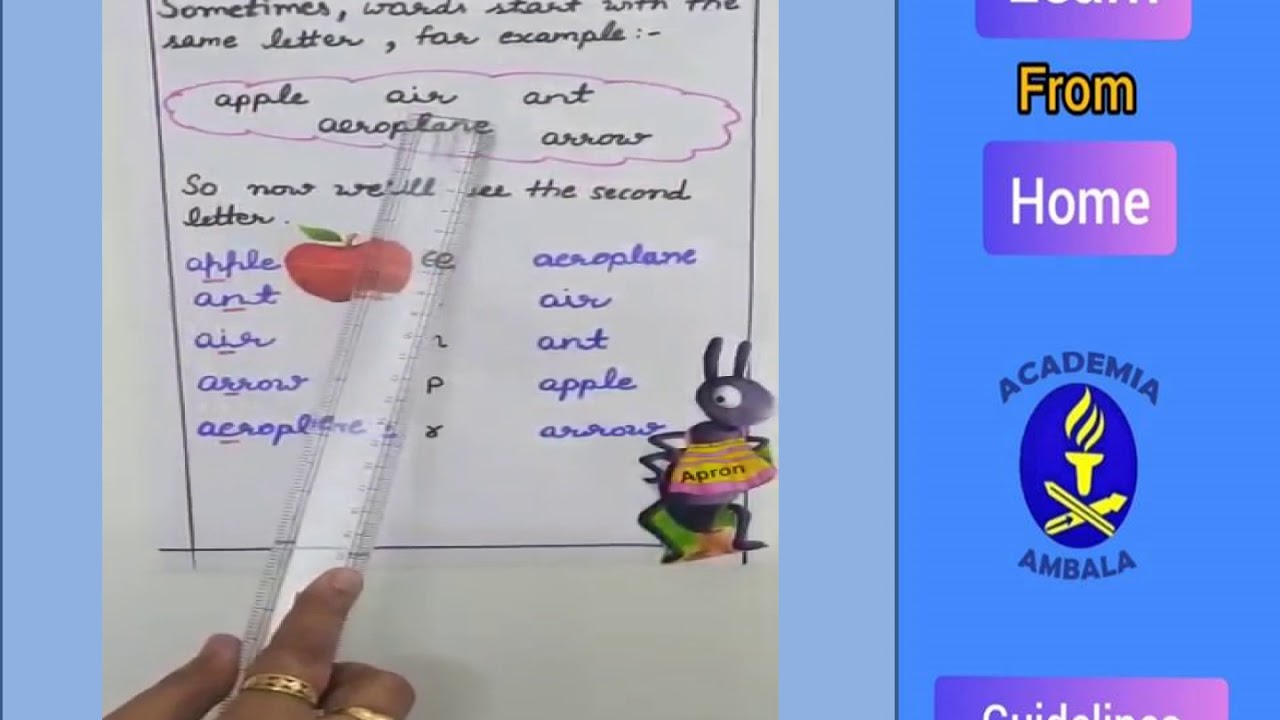 Sometimes, words start with the
same letter, for example:-
apple air ant
aeroplane arrow
So now we'll see the second
letter.
apple ee aeroplane
ant air
air ant
arrow p apple
aeroplane r arrow
Apron
Learn
From
Home
ACADEMIA
AMBALA
Guidelines